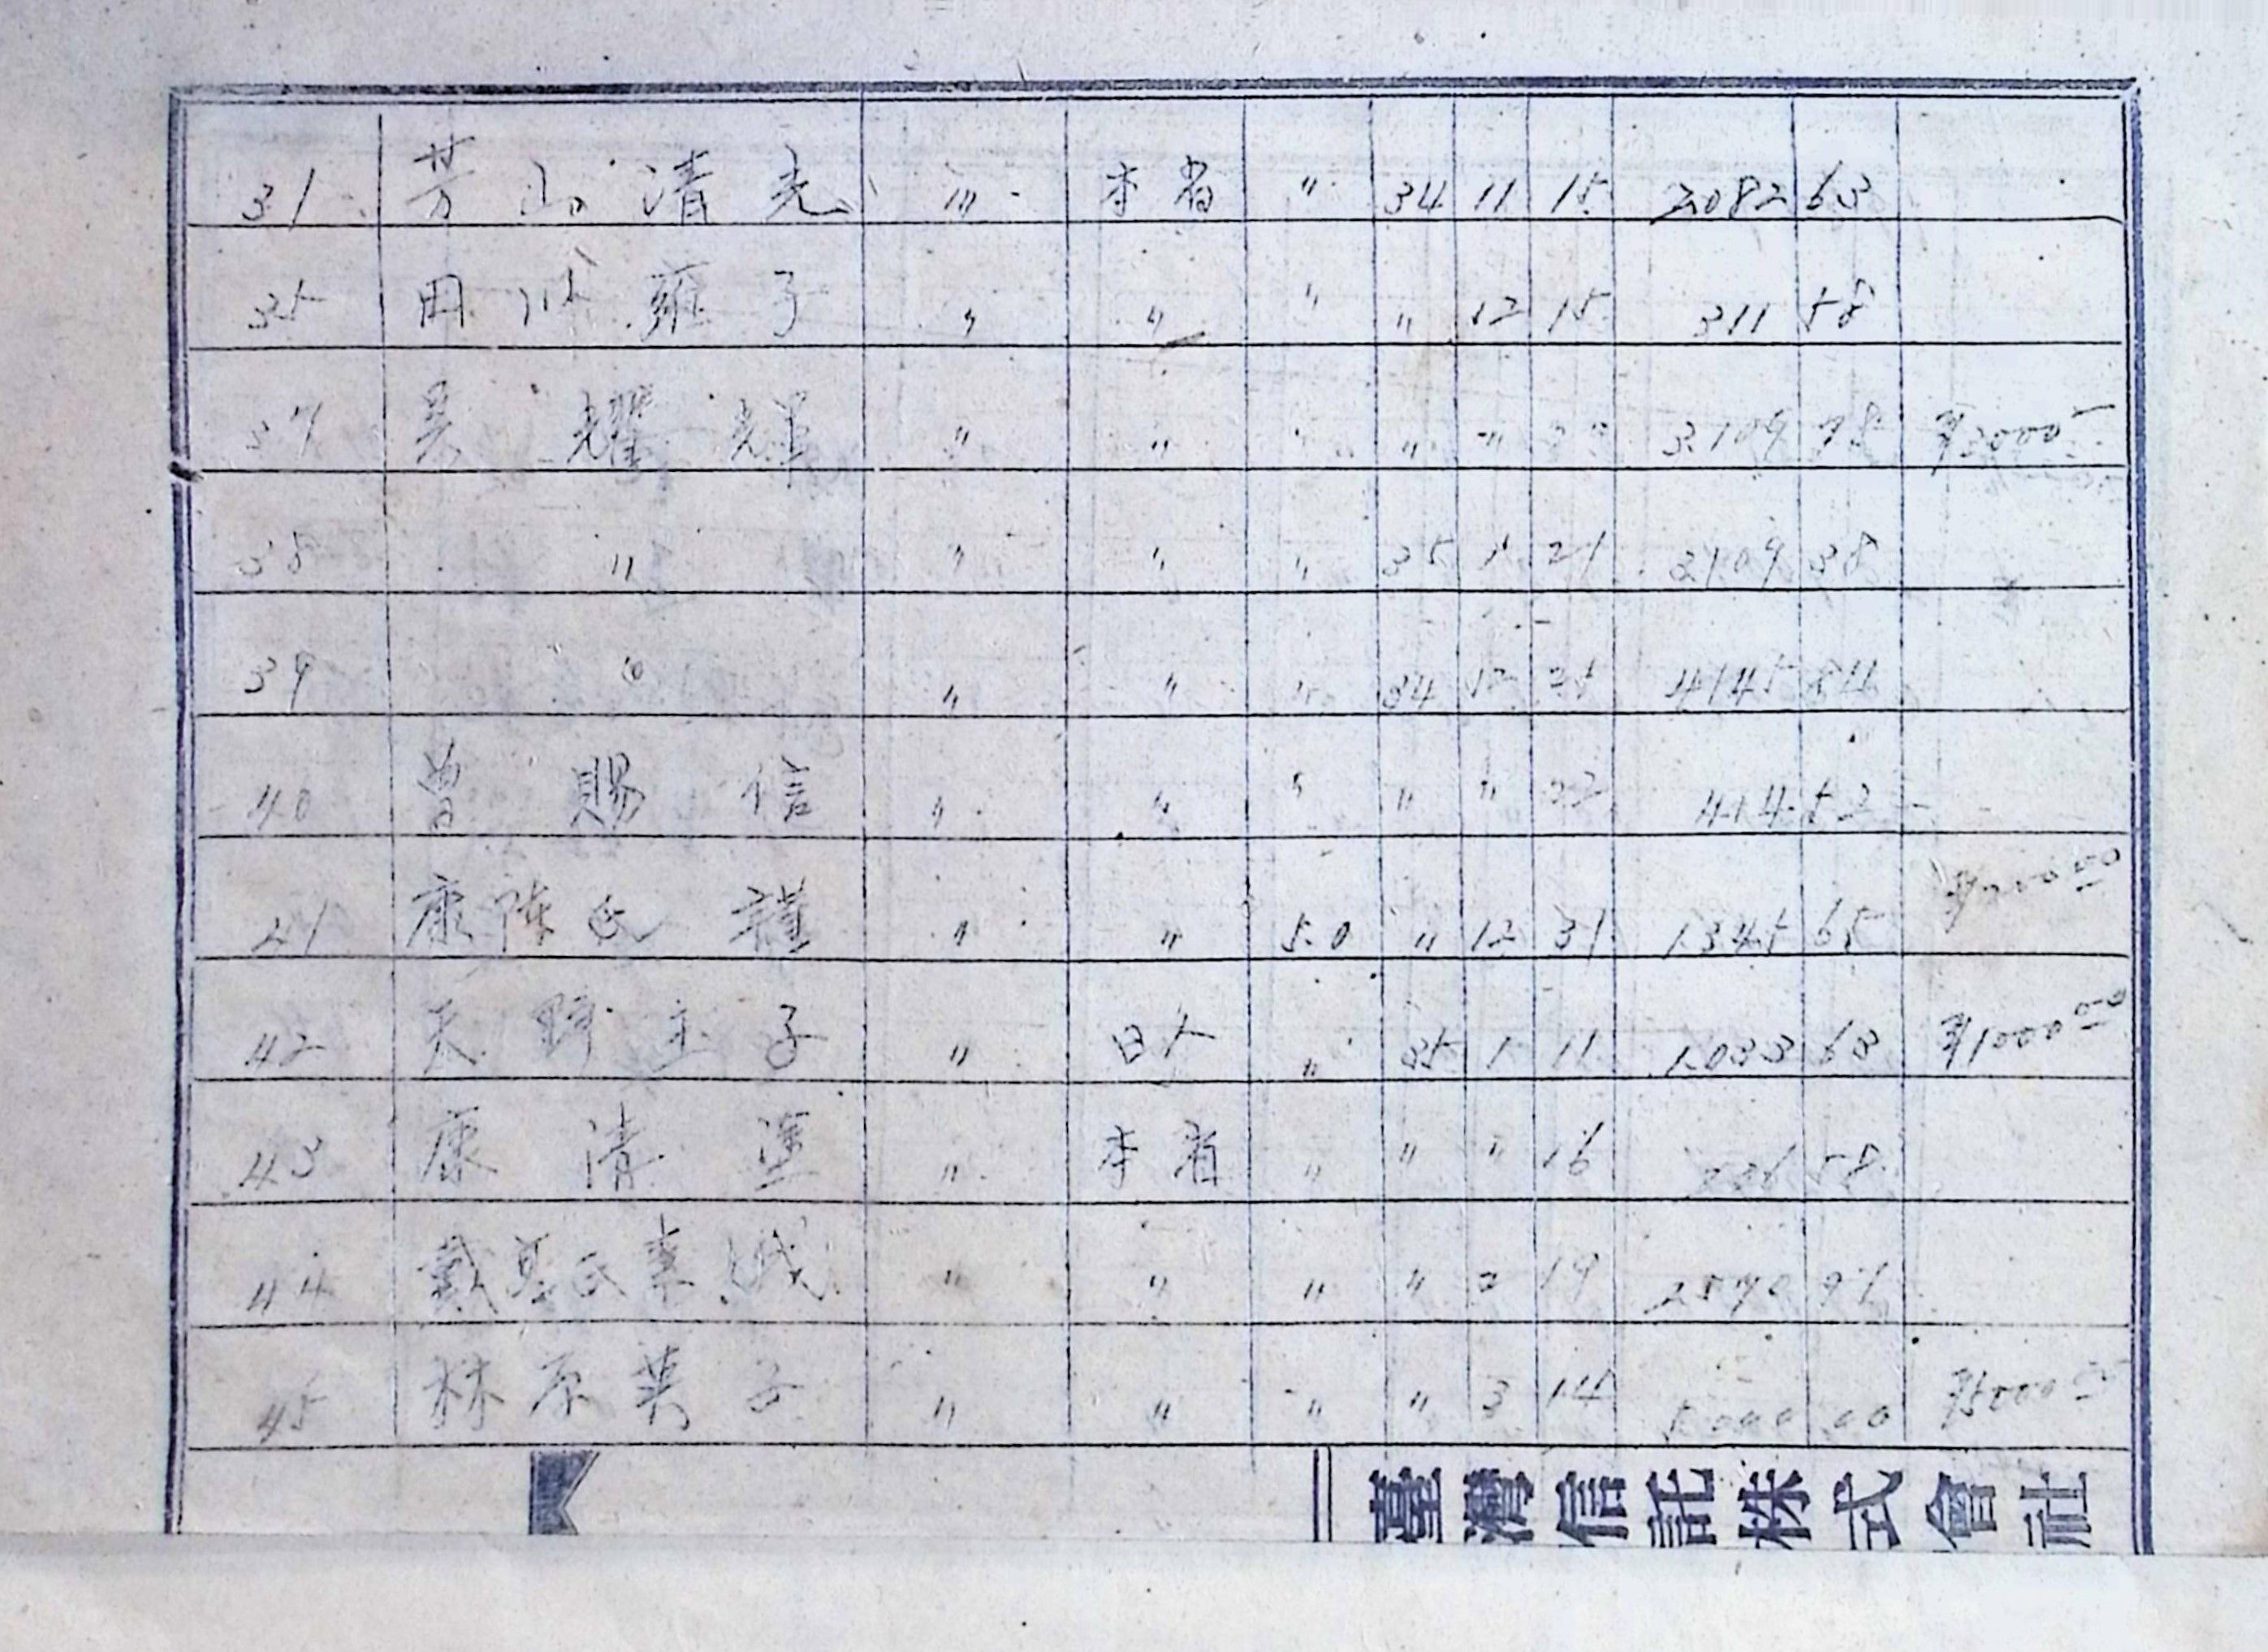 31 芳山清光 〃 本省 〃 34 11 15 2082 63
35 田川雍子 〃 〃 〃 〃 12 15 311 58
37 吳耀輝 〃 〃 〃 〃 〃 3109 38 ¥3000
38 〃 〃 〃 〃 35 1 21 3109 38
39 〃 〃 〃 〃 34 12 25 4145 84
40 曾賜信 〃 〃 〃 〃 〃 22 414 52
41 康陳氏謹 〃 〃 5.0 〃 12 31 1345 65
42 天野玉子 〃 日人 〃 35 1 11 1033 63 ¥1000 00
43 康清塗 〃 本省 〃 〃 〃 16 58
44 戴 氏素娥 〃 〃 〃 〃 2 19 2570 97
45 林原英子 〃 〃 〃 〃 3 14 5000 00 ¥5000
臺灣信託株式會社